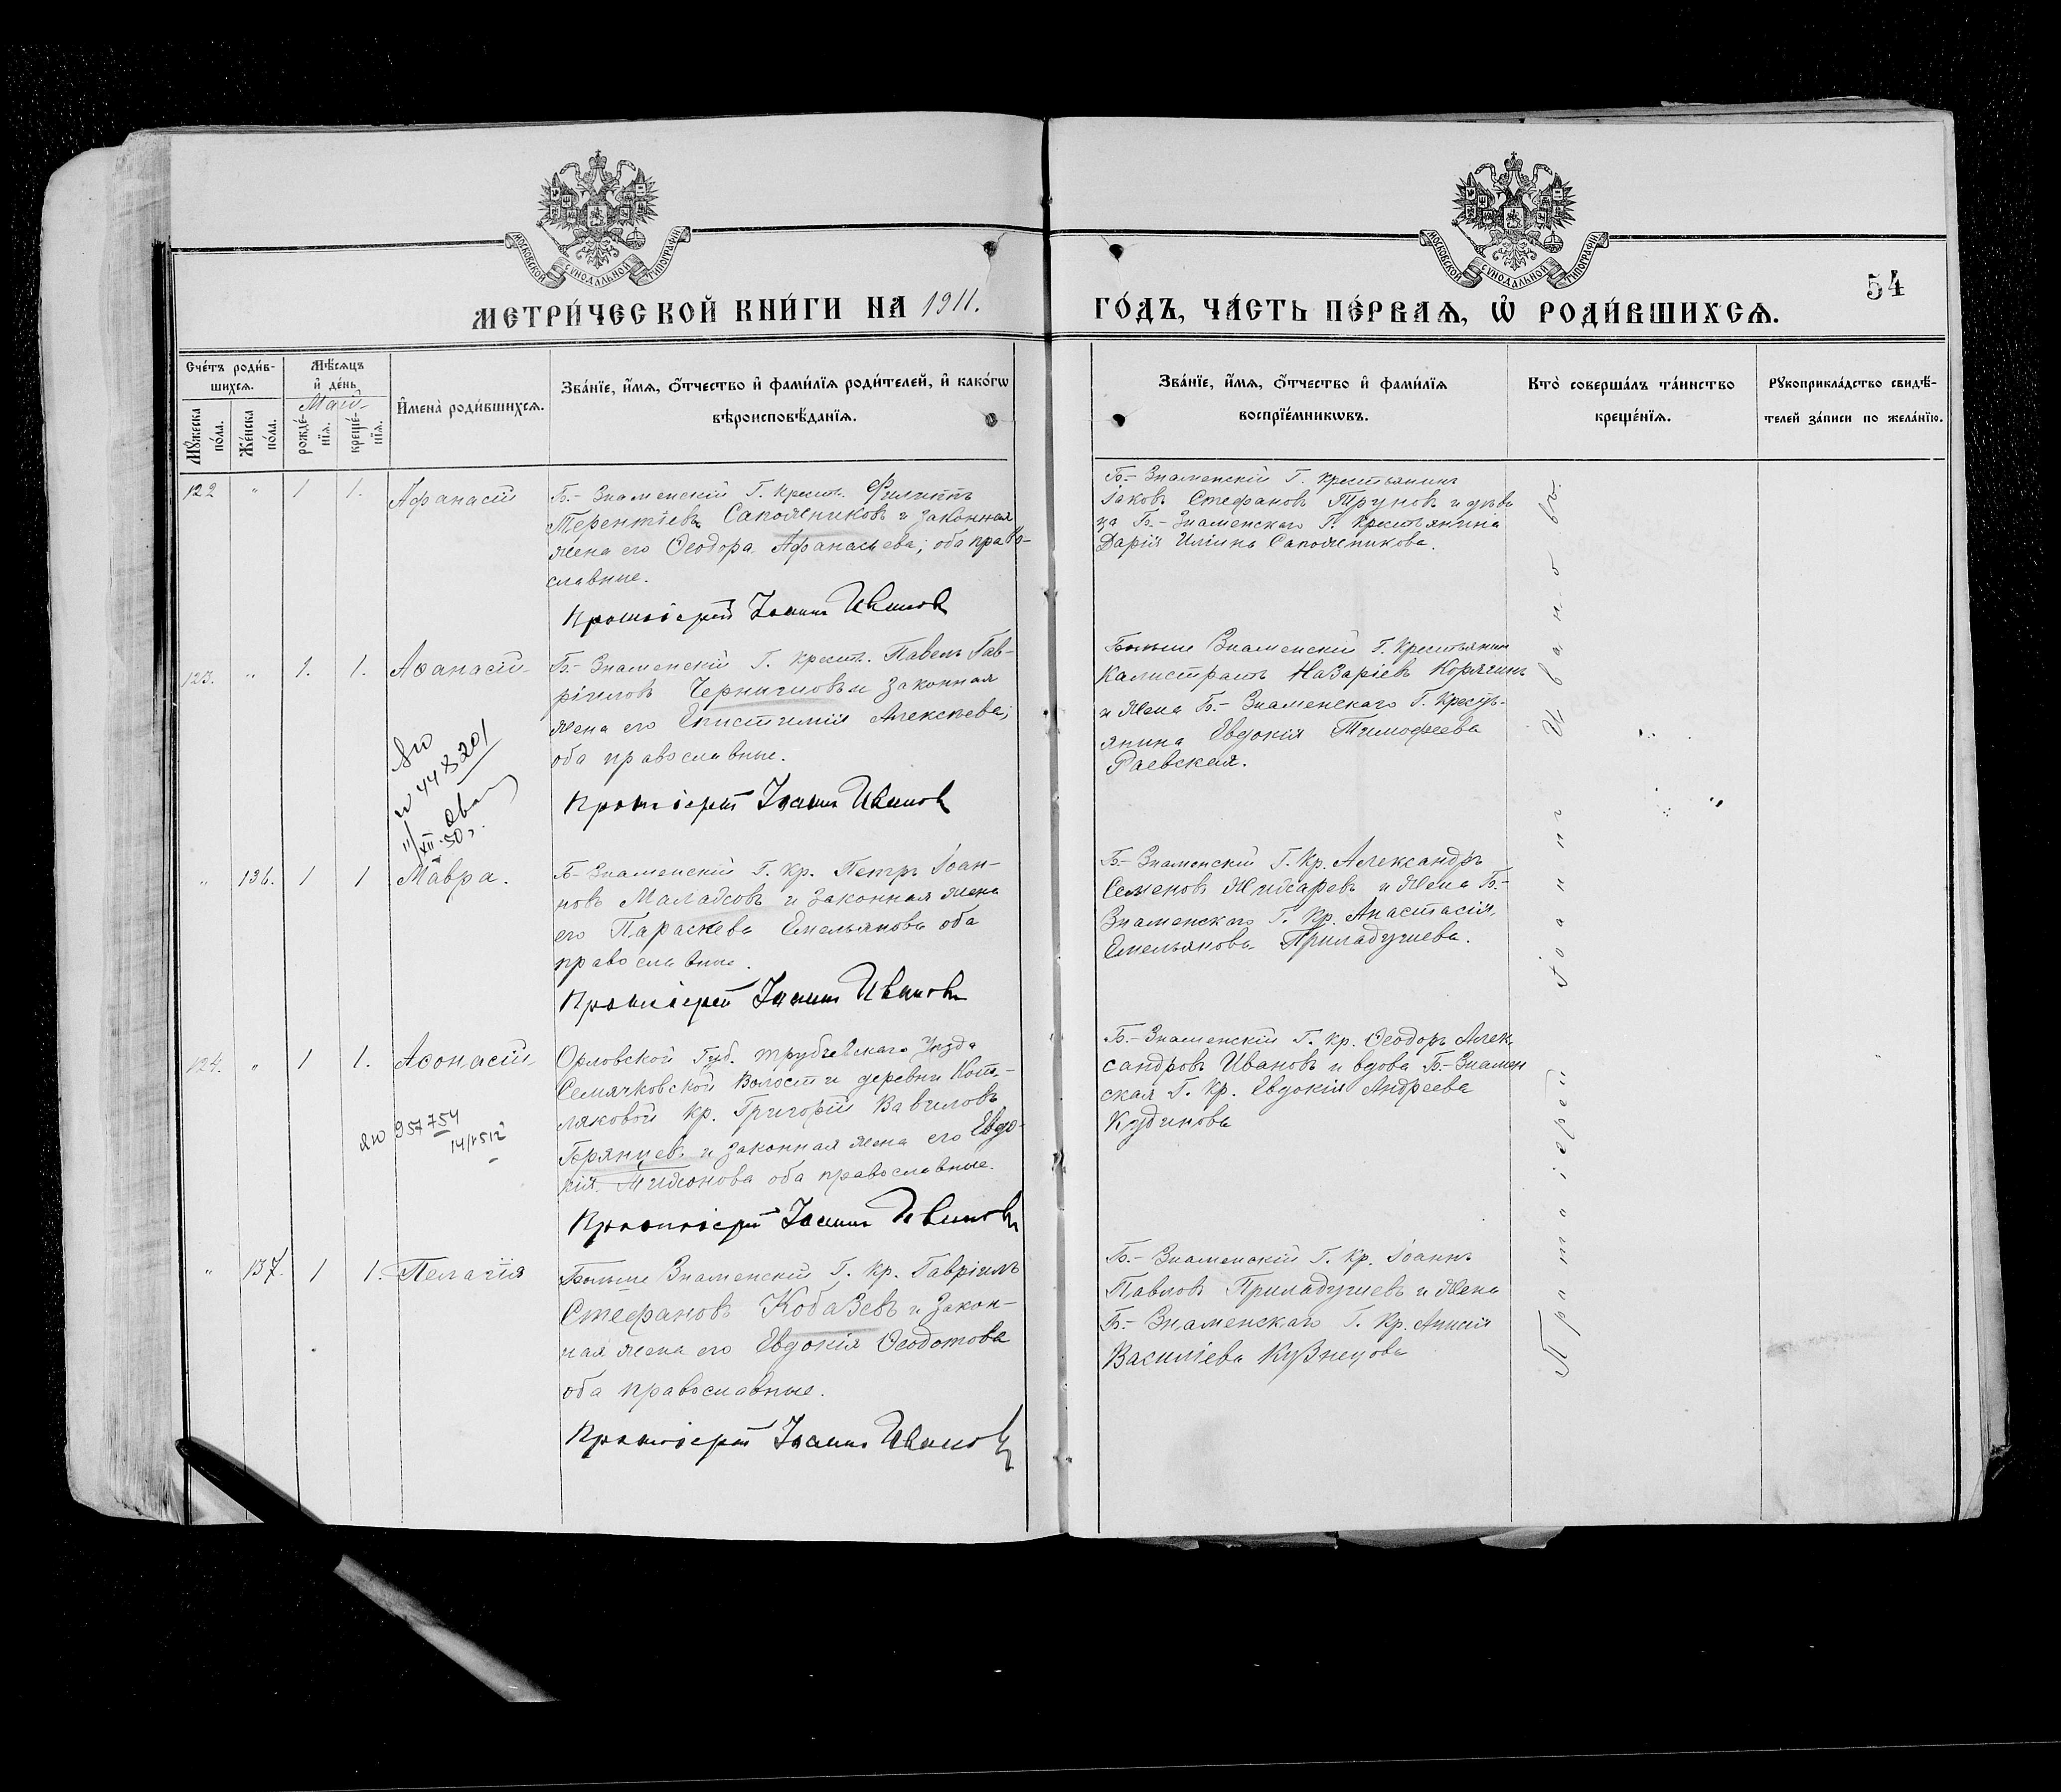 МОСКОВСКОЙ СѴНОДАЛЬНОЙ ТИПОГРАФІИ
МОСКОВСКОЙ СѴНОДАЛЬНОЙ ТИПОГРАФІИ
54
МЕТРИ́ЧЕСКОЙ КНИ́ГИ НА 1911.
ГО́ДЪ, ЧА́СТЬ ПЕ́РВАѦ, Ѡ҆ РОДИ́ВШИХСѦ.
Сче́тъ роди́в-
шихсѧ.
Мѣ́сѧцъ
и҆ де́нь
Май
Мꙋ́жеска по́ла.
Же́нска по́ла.
рожде́-нїѧ.
креще́-нїѧ.
И҆мена̀ роди́вшихсѧ.
Зва́нїе, и҆́мѧ, ѻ҆́тчество и҆ фами́лїѧ роди́телей, и҆ како́гѡ
вѣроисповѣ́данїѧ.
Зва́нїе, и҆́мѧ, ѻ҆́тчество и҆ фами́лїѧ
воспрїе́мникѡвъ.
Кто̀ соверша́лъ та́инство
креще́нїѧ.
Рꙋкоприкла́дство свидѣ́-
телей за́писи по жела́нїю.
122 " 1 1. Афанасій
Б.- Знаменскій Г. Крест. Филиппъ
Терентіевъ Сапожниковъ и законная
жена его Ѳеодора Афанасьева; оба право-
славные.
Протоіерей Іоаннъ Ивановъ
Б.- Знаменскій Г. Крестьянинъ
Іаковъ Стефановъ Труновъ и дѣви
ца Б.- Знаменскаго Г. Крестьянина
Дарія Иліина Сапожникова.
123. " 1. 1. Аѳанасій
Б.- Знаменскій Г. Крест. Павелъ Гав-
ріиловъ Чернигиовъ и законная
жена его Епистимія Алексѣева;
оба православные.
Протоіерей Іоаннъ Ивановъ
44 8201
XII. 50
Больше Знаменскій Г. Крестьянин
Калистратъ Назаріевъ Корягинъ
и жена Б.- Знаменскаго Г. Кресть-
янина Евдокія Тимофеева
Раевская.
" 136. 1 1 Мавра.
Б- Знаменскій Г. Кр. Петръ Іоан-
новъ Маладсовъ и законная жена
его Параскева Емельянова оба
православные.
Протоіерей Іоаннъ Ивановъ
Б.- Знаменскій Г. Кр. Александръ
Семеновъ и жена Б.-
Знаменскаго Г. Кр. Анастасія
Емельянова Приладушева.
124. " 1 1. Аѳонасій
Орловской Губ. Трубчевскаго Уѣзда
Семячковской Волости деревни Кот-
ляковой Кр. Григорій Вавиловъ
Брянцевъ и законная жена его Евдо-
кія оба православные.
Протоіерей Іоаннъ Ивановъ
957754
Б.- Знаменскій Г. Кр. Ѳеодоръ Алек
сандровъ Ивановъ и вдова Б.-Знамен
ская Г. Кр. Евдокія Андреева
Кудинова
" 137. 1 1. Пелагія
Больше Знаменскій Г. Кр. Гавріилъ
Стефановъ Кобазевъ и закон-
ная жена его Евдокія Ѳеодотова
оба православные.
Протоіерей Іоаннъ Ивановъ
Б.- Знаменскій Г. Кр. Іоаннъ
Павловъ Приладушевъ и жена
Б.- Знаменскаго Г. Кр. Анисія
Василіева Кузнецова
Протоіерей Іоаннъ Ивановъ.